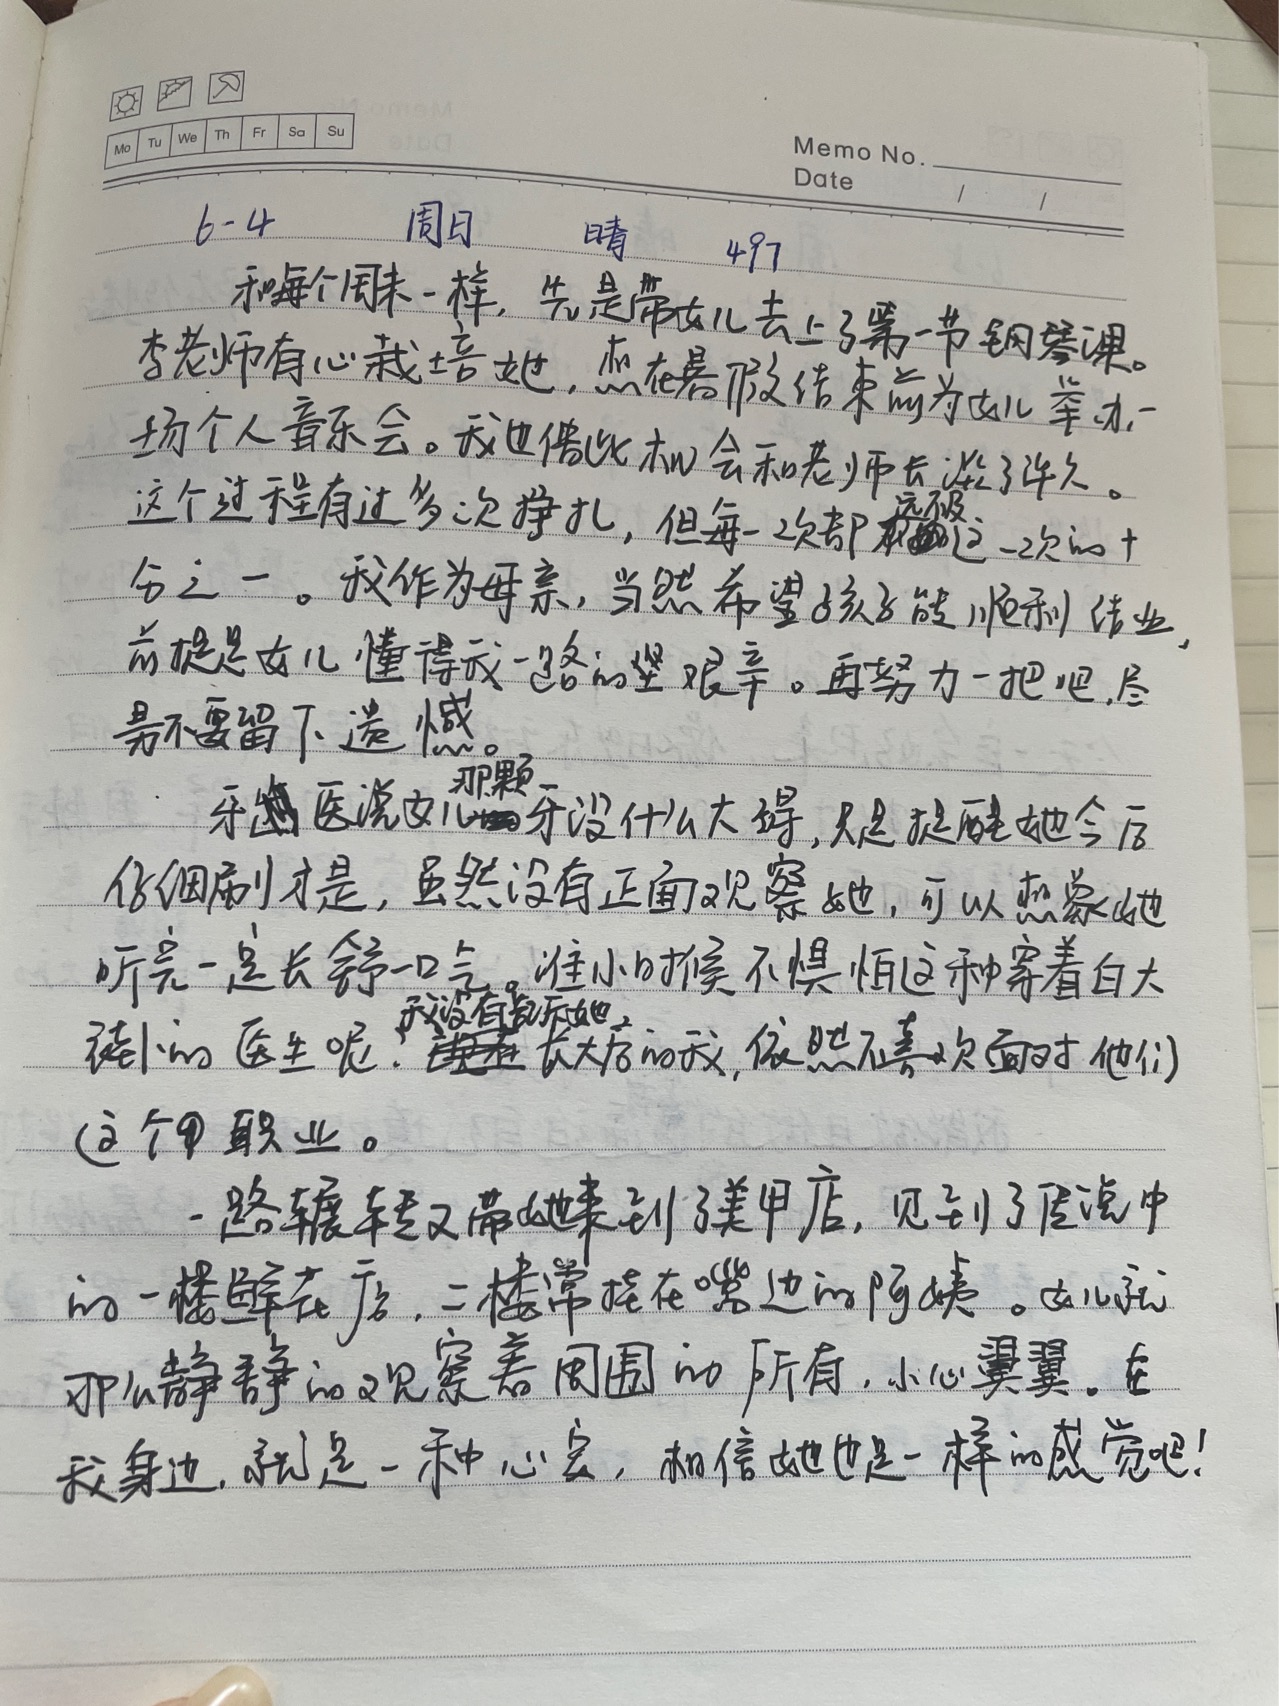 Mo Tu We Th Fr Sa Su
Memo No.
Date / /
6-4 周日 晴 497
和每个周末一样，先是带女儿去上了第一节钢琴课。
李老师有心栽培她，想在暑假结束前为女儿举办一
场个人音乐会。我也借此机会和老师长谈了许久。
这个过程有过多次挣扎，但每一次都远不及这一次的十
分之一。我作为母亲，当然希望孩子能顺利结业，
前提是女儿懂得我一路的坚艰辛。再努力一把吧，尽
量不要留下遗憾。
牙医说女儿那颗牙没什么大碍，只是提醒她今后
仔细刷才是，虽然没有正面观察她，可以想象她
听完一定长舒一口气。谁小时候不惧怕这种穿着白大
褂的医生呢？我没有告诉她，长大后的我，依然不喜欢面对他们
这个职业。
一路辗转又带她来到了美甲店，见到了传说中
的一楼鲜花店，二楼常挂在嘴边的阿姨。女儿就
那么静静的观察着周围的所有，小心翼翼。在
我身边，就是一种心安，相信她也是一样的感觉吧！